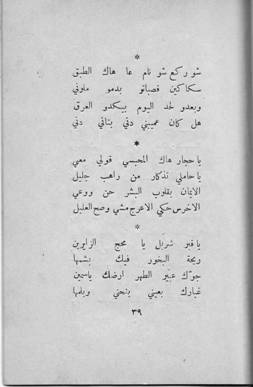 *
شو ركع شو نام عا هاك الطبق
سكاكين قصباتو بدمو ملوني
وبعدو لحد اليوم بيبكدو العرق
هل كان عميبني دقي بناقي دني
*
يا حجار هاك المحبسي قولي معي
يا حاملي تذكار من راهب جليل
الايمان بقلوب البشر حن ووعي
الاخرس حكي الاعرج مشي وصح العليل
*
يا قبر شربل يا محج الزايرين
ريحة البخور فيك بشمها
جوّك عبير الطهر ارضك ياسمين
غبارك بعيني بنحني وبلمها
٣٩